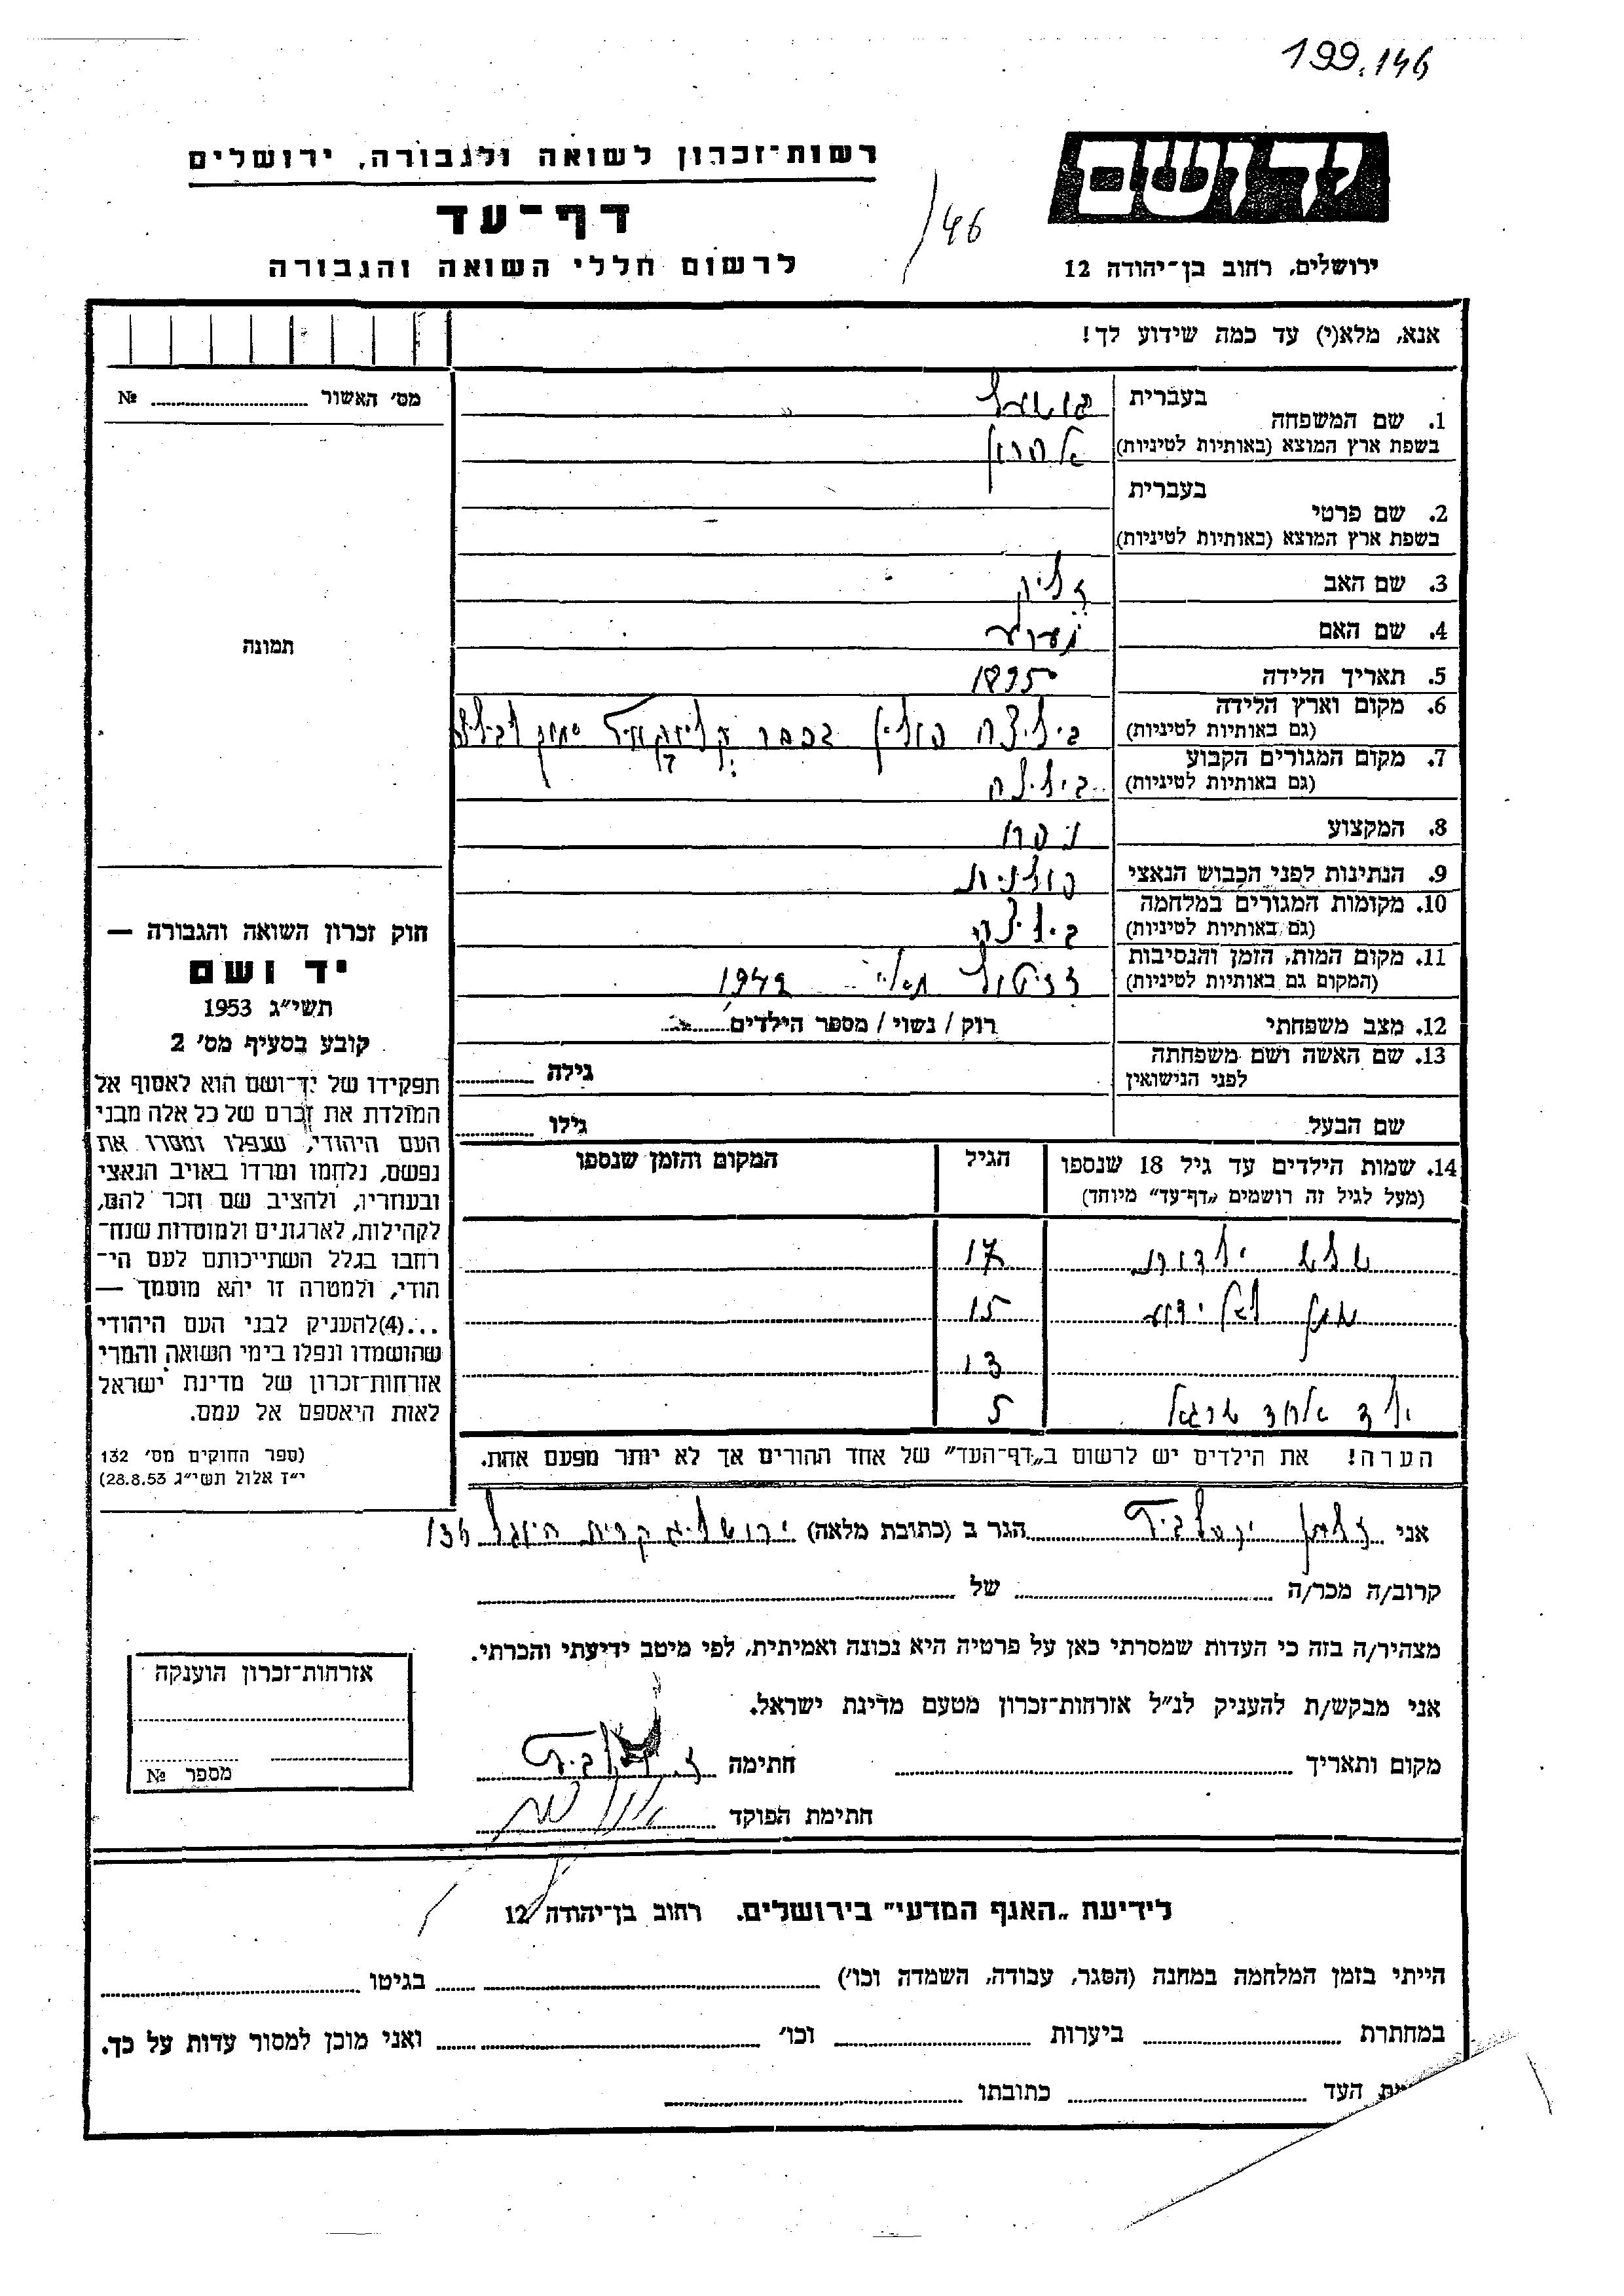 199.146
רשות-זכרון לשואה ולגבורה, ירושלים
דף-עד
לרשום חללי השואה והגבורה
146
יד ושם
ירושלים, רחוב בן-יהודה 12
אנא, מלא(י) עד כמה שידוע לך!
מס' האשור № 
1. שם המשפחה
בעברית
בשפת ארץ המוצא (באותיות לטיניות) אהרון
2. שם פרטי
בעברית
בשפת ארץ המוצא (באותיות לטיניות)
3. שם האב
4. שם האם
5. תאריך הלידה 1895
6. מקום וארץ הלידה
(גם באותיות לטיניות) פולין בכפר סמוך
7. מקום המגורים הקבוע
(גם באותיות לטיניות)
8. המקצוע
9. הנתינות לפני הכבוש הנאצי פולנית
10. מקומות המגורים במלחמה
(גם באותיות לטיניות)
11. מקום המות, הזמן והנסיבות
(המקום גם באותיות לטיניות) 1942
12. מצב משפחתי רוק / נשוי / מספר הילדים
13. שם האשה ושם משפחתה
לפני הנישואין גילה
שם הבעל גילו
14. שמות הילדים עד גיל 18 שנספו
(מעל לגיל זה רושמים „דף-עד" מיוחד)
הגיל
המקום והזמן שנספו
שלש ילדות 17
שמן לא ידוע 15
13
ילד אחד 5
הערה! את הילדים יש לרשום ב„דף-העד" של אחד ההורים אך לא יותר מפעם אחת.
תמונה
חוק זכרון השואה והגבורה —
יד ושם
תשי"ג 1953
קובע בסעיף מס' 2
תפקידו של יד-ושם הוא לאסוף אל
המולדת את זכרם של כל אלה מבני
העם היהודי, שנפלו ומסרו את
נפשם, נלחמו ומרדו באויב הנאצי
ובעוזריו, ולהציב שם וזכר להם,
לקהילות, לארגונים ולמוסדות שנח-
רבו בגלל השתייכותם לעם הי-
הודי, ולמטרה זו יהא מוסמך —
...(4) להעניק לבני העם היהודי
שהושמדו ונפלו בימי השואה והמרי
אזרחות-זכרון של מדינת ישראל
לאות היאספם אל עמם.
(ספר החוקים מס' 132
י"ז אלול תשי"ג 28.8.53)
אני זלמן הגר ב (כתובת מלאה) ירושלים קרית היובל 136
קרוב/ה מכר/ה של
מצהיר/ה בזה כי העדות שמסרתי כאן על פרטיה היא נכונה ואמיתית, לפי מיטב ידיעתי והכרתי.
אני מבקש/ת להעניק לנ"ל אזרחות-זכרון מטעם מדינת ישראל.
מקום ותאריך חתימה
חתימת הפוקד
אזרחות-זכרון הוענקה
מספר №
לידיעת „האגף המדעי" בירושלים. רחוב בן-יהודה 12
הייתי בזמן המלחמה במחנה (הסגר, עבודה, השמדה וכו') בגיטו
במחתרת ביערות וכו' ואני מוכן למסור עדות על כך.
העד כתובתו